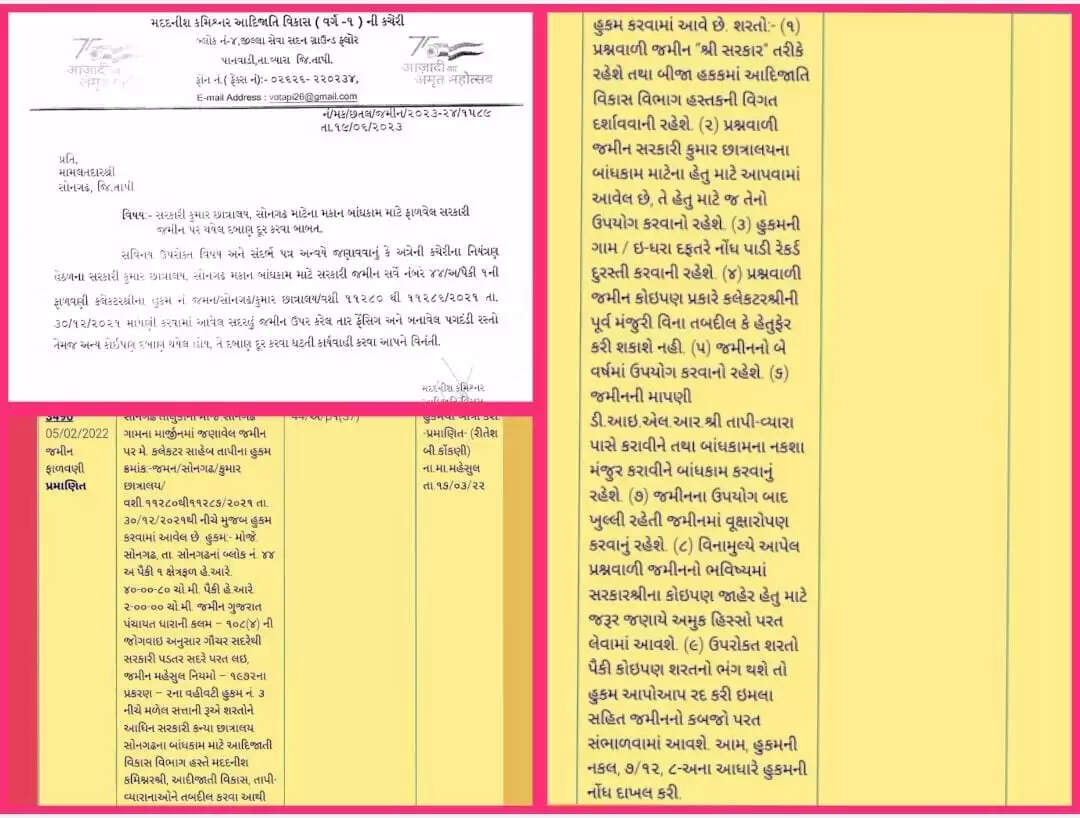 મદદનીશ કમિશ્નર આદિજાતિ વિકાસ ( વર્ગ -૧ ) ની કચેરી
બ્લોક નં-૪,જીલ્લા સેવા સદન ગ્રાઉન્ડ ફ્લોર
પાનવાડી,તા.વ્યારા જિ.તાપી.
ફોન નં.( ફેક્સ નં):- ૦૨૬૨૬- ૨૨૦૨૩૪,
E-mail Address : votapi26@gmail.com
આઝાદી કા
અમૃત મહોત્સવ
આઝાદી કા
અમૃત મહોત્સવ
નં/મક/છતલ/જમીન/૨૦૨૩-૨૪/૧૫૮૯
તા.૧૯/૦૬/૨૦૨૩
પ્રતિ,
મામલતદારશ્રી
સોનગઢ, જિ.તાપી
વિષય:- સરકારી કુમાર છાત્રાલય, સોનગઢ માટેના મકાન બાંધકામ માટે ફાળવેલ સરકારી
જમીન પર થયેલ દબાણ દૂર કરવા બાબત.
સવિનય ઉપરોક્ત વિષય અને સંદર્ભ પત્ર અન્વયે જણાવવાનું કે અત્રેની કચેરીના નિયંત્રણ
હેઠળના સરકારી કુમાર છાત્રાલય, સોનગઢ મકાન બાંધકામ માટે સરકારી જમીન સર્વે નંબર ૪૪/અ/પૈકી ૧ની
ફાળવણી કલેકટરશ્રીના હુકમ નં જમન/સોનગઢ/કુમાર છાત્રાલય/વશી ૧૧૨૮૦ થી ૧૧૨૮૬/૨૦૨૧ તા.
૩૦/૧૨/૨૦૨૧ માપણી કરવામાં આવેલ સદરહું જમીન ઉપર કરેલ તાર ફેંસિગ અને બનાવેલ પગદંડી રસ્તો
તેમજ અન્ય કોઇપણ દબાણ થયેલ હોય, તે દબાણ દૂર કરવા ઘટતી કાર્યવાહી કરવા આપને વિનંતી.
મદદનીશ કમિશ્નર
3490
05/02/2022
જમીન
ફાળવણી
પ્રમાણિત
સોનગઢ તાલુકાના મોજે સોનગઢ
ગામના માર્જીનમાં જણાવેલ જમીન
પર મે. કલેકટર સાહેબ તાપીના હુકમ
ક્રમાંક:-જમન/સોનગઢ/કુમાર
છાત્રાલય/
વશી.૧૧૨૮૦થી૧૧૨૮૬/૨૦૨૧ તા.
૩૦/૧૨/૨૦૨૧થી નીચે મુજબ હુકમ
કરવામાં આવેલ છે. હુકમ:- મોજે.
સોનગઢ, તા. સોનગઢનાં બ્લોક નં. ૪૪
અ પૈકી ૧ ક્ષેત્રફળ હે.આરે.
૪૦-૦૦-૮૦ ચો.મી. પૈકી હે.આરે.
૨-૦૦-૦૦ ચો.મી. જમીન ગુજરાત
પંચાયત ધારાની કલમ – ૧૦૮(૪) ની
જોગવાઇ અનુસાર ગૌચર સદરેથી
સરકારી પડતર સદરે પરત લઇ,
જમીન મહેસુલ નિયમો – ૧૯૭૨ના
પ્રકરણ – ૨ના વહીવટી હુકમ નં. ૩
નીચે મળેલ સત્તાની રૂએ શરતોને
આધિન સરકારી કન્યા છાત્રાલય
સોનગઢના બાંધકામ માટે આદિજાતી
વિકાસ વિભાગ હસ્તે મદદનીશ
કમિશ્નરશ્રી, આદીજાતી વિકાસ, તાપી-
વ્યારાનાઓને તબદીલ કરવા આથી
-પ્રમાણિત- (રીતેશ
બી.કોંકણી)
ના.મા.મહેસુલ
તા.૧૬/૦૩/૨૨
હુકમ કરવામાં આવે છે. શરતો:- (૧)
પ્રશ્નવાળી જમીન "શ્રી સરકાર" તરીકે
રહેશે તથા બીજા હકકમાં આદિજાતિ
વિકાસ વિભાગ હસ્તકની વિગત
દર્શાવવાની રહેશે. (૨) પ્રશ્નવાળી
જમીન સરકારી કુમાર છાત્રાલયના
બાંધકામ માટેના હેતુ માટે આપવામાં
આવેલ છે, તે હેતુ માટે જ તેનો
ઉપયોગ કરવાનો રહેશે. (૩) હુકમની
ગામ / ઇ-ધરા દફતરે નોંધ પાડી રેકર્ડ
દુરસ્તી કરવાની રહેશે. (૪) પ્રશ્નવાળી
જમીન કોઇપણ પ્રકારે કલેકટરશ્રીની
પૂર્વ મંજુરી વિના તબદીલ કે હેતુફેર
કરી શકાશે નહી. (૫) જમીનનો બે
વર્ષમાં ઉપયોગ કરવાનો રહેશે. (૬)
જમીનની માપણી
ડી.આઇ.એલ.આર.શ્રી તાપી-વ્યારા
પાસે કરાવીને તથા બાંધકામના નકશા
મંજુર કરાવીને બાંધકામ કરવાનું
રહેશે. (૭) જમીનના ઉપયોગ બાદ
ખુલ્લી રહેતી જમીનમાં વૃક્ષારોપણ
કરવાનું રહેશે. (૮) વિનામુલ્યે આપેલ
પ્રશ્નવાળી જમીનનો ભવિષ્યમાં
સરકારશ્રીના કોઇપણ જાહેર હેતુ માટે
જરૂર જણાયે અમુક હિસ્સો પરત
લેવામાં આવશે. (૯) ઉપરોકત શરતો
પૈકી કોઇપણ શરતનો ભંગ થશે તો
હુકમ આપોઆપ રદ કરી ઇમલા
સહિત જમીનનો કબજો પરત
સંભાળવામાં આવશે. આમ, હુકમની
નકલ, ૭/૧૨, ૮-અના આધારે હુકમની
નોંધ દાખલ કરી.